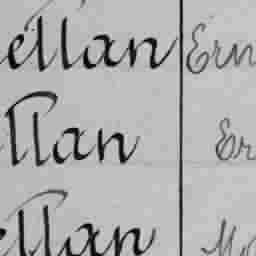 ellan Ern
llan Er
ellan